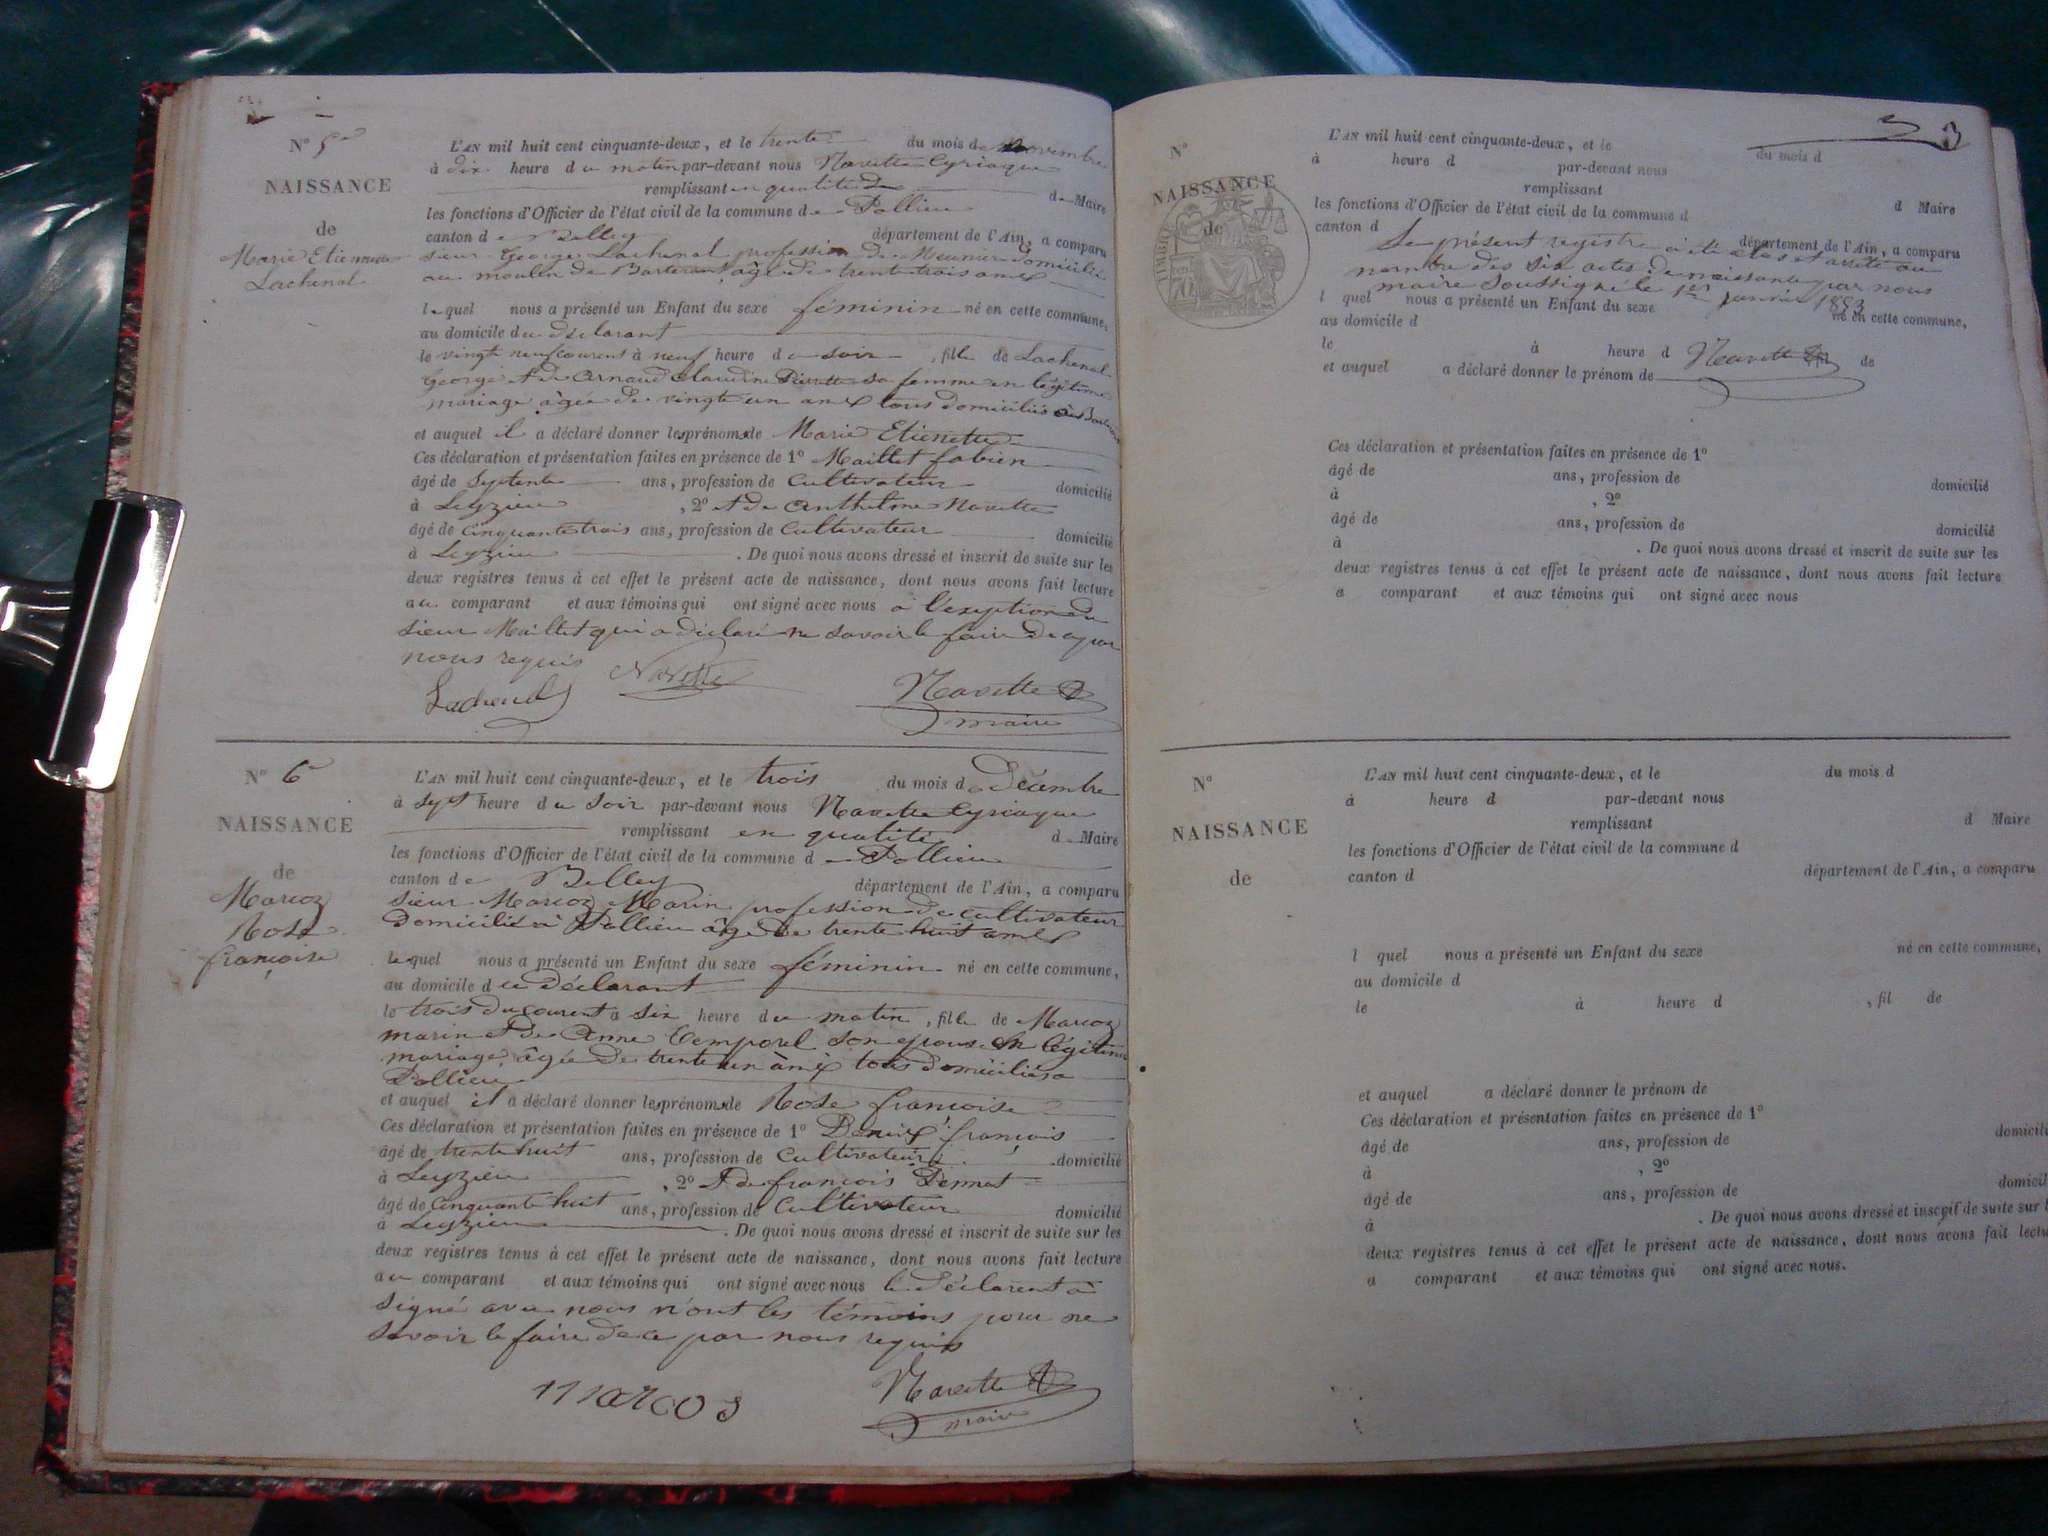 N° 5e
NAISSANCE
de
Marie Etiennette
Lachenal
L'AN mil huit cent cinquante-deux, et le trente du mois de Novembre
à dix heure du matin par-devant nous Navette Cyriaque
remplissant en qualité de Maire
les fonctions d'Officier de l'état civil de la commune de Pollieu
canton de Belley département de l'Ain, a comparu
sieur George Lachenal profession de Meunier domicilié
au moulin de âgé de trente trois ans
lequel nous a présenté un Enfant du sexe féminin né en cette commune,
au domicile du déclarant
le vingt neuf courant à neuf heure du soir, fille de Lachenal
George et de Arnaud Claudine Pierrette sa femme en légitime
mariage âgée de vingt un ans tous domiciliés
et auquel il a déclaré donner les prénoms de Marie Etienette
Ces déclaration et présentation faites en présence de 1° Maillet fabien
âgé de Septente ans, profession de Cultivateur domicilié
à Leyzieu, 2° et de Anthelme Navette
âgé de Cinquante trois ans, profession de Cultivateur domicilié
à Leyzieu. De quoi nous avons dressé et inscrit de suite sur les
deux registres tenus à cet effet le présent acte de naissance, dont nous avons fait lecture
au comparant et aux témoins qui ont signé avec nous à l'exeption du
sieur Maillet qui a déclaré ne savoir le faire de ce par
nous requis
Lachenal Navette Navette
maire
N° 6e
NAISSANCE
de
Marcoz
Rose
françoise
L'AN mil huit cent cinquante-deux, et le trois du mois de Décembre
à sept heure du soir par-devant nous Navette Cyriaque
remplissant en qualité de Maire
les fonctions d'Officier de l'état civil de la commune de Pollieu
canton de Belley département de l'Ain, a comparu
sieur Marcoz Marin profession de cultivateur
domicilié à Pollieu âgé de trente huit ans
lequel nous a présenté un Enfant du sexe féminin né en cette commune,
au domicile du déclarant
le trois du courant à six heure du matin, fille de Marcoz
marin et de Anne Temporel son epouse en légitime
mariage âgée de trente un ans tous domiciliés a
Pollieu
et auquel il a déclaré donner les prénoms de Rose françoise
Ces déclaration et présentation faites en présence de 1° Denix françois
âgé de trente huit ans, profession de Cultivateur domicilié
à Leyzieu, 2° et de françois Pernat
âgé de Cinquante huit ans, profession de Cultivateur domicilié
à Leyzieu. De quoi nous avons dressé et inscrit de suite sur les
deux registres tenus à cet effet le présent acte de naissance, dont nous avons fait lecture
au comparant et aux témoins qui ont signé avec nous le déclarent à
signé avec nous n'ont les témoins pour ne
savoir le faire de ce par nous requis
marcos Navette
maire
3
N°
NAISSANCE
de
L'AN mil huit cent cinquante-deux, et le du mois d
à heure d par-devant nous
remplissant d Maire
les fonctions d'Officier de l'état civil de la commune d
canton d département de l'Ain, a comparu
Le présent registre à été clos et arrêté au
nombre des six actes de naissante par nous
maire soussigné le 1er janvier 1853
l quel nous a présenté un Enfant du sexe né en cette commune,
au domicile d
le à heure d Navette de
et auquel a déclaré donner le prénom de
Ces déclaration et présentation faites en présence de 1°
âgé de ans, profession de domicilié
à , 2°
âgé de ans, profession de domicilié
à . De quoi nous avons dressé et inscrit de suite sur les
deux registres tenus à cet effet le présent acte de naissance, dont nous avons fait lecture
a comparant et aux témoins qui ont signé avec nous
N°
NAISSANCE
de
L'AN mil huit cent cinquante-deux, et le du mois d
à heure d par-devant nous
remplissant d Maire
les fonctions d'Officier de l'état civil de la commune d
canton d département de l'Ain, a comparu
l quel nous a présenté un Enfant du sexe né en cette commune,
au domicile d
le à heure d , fil de
et auquel a déclaré donner le prénom de
Ces déclaration et présentation faites en présence de 1°
âgé de ans, profession de domicili
à , 2°
âgé de ans, profession de domicil
à . De quoi nous avons dressé et inscrit de suite sur l
deux registres tenus à cet effet le présent acte de naissance, dont nous avons fait lectu
a comparant et aux témoins qui ont signé avec nous.